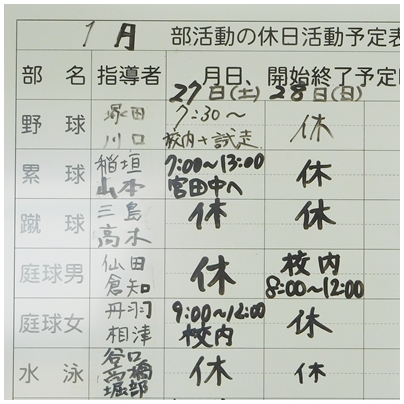 1月 部活動の休日活動予定表
部 名 指導者 月日、開始終了予定
27日(土) 28日(日)
野 球 塚田 7:30～ 休
川口 校内+試走
累 球 稲垣 7:00～13:00 休
山本 宮田中へ
蹴 球 三島 休 休
高木
庭球男 仙田 休 校内
倉知 8:00～12:00
庭球女 丹羽 9:00～12:00 休
相津 校内
水 泳 谷口 休 休
高橋
堀部